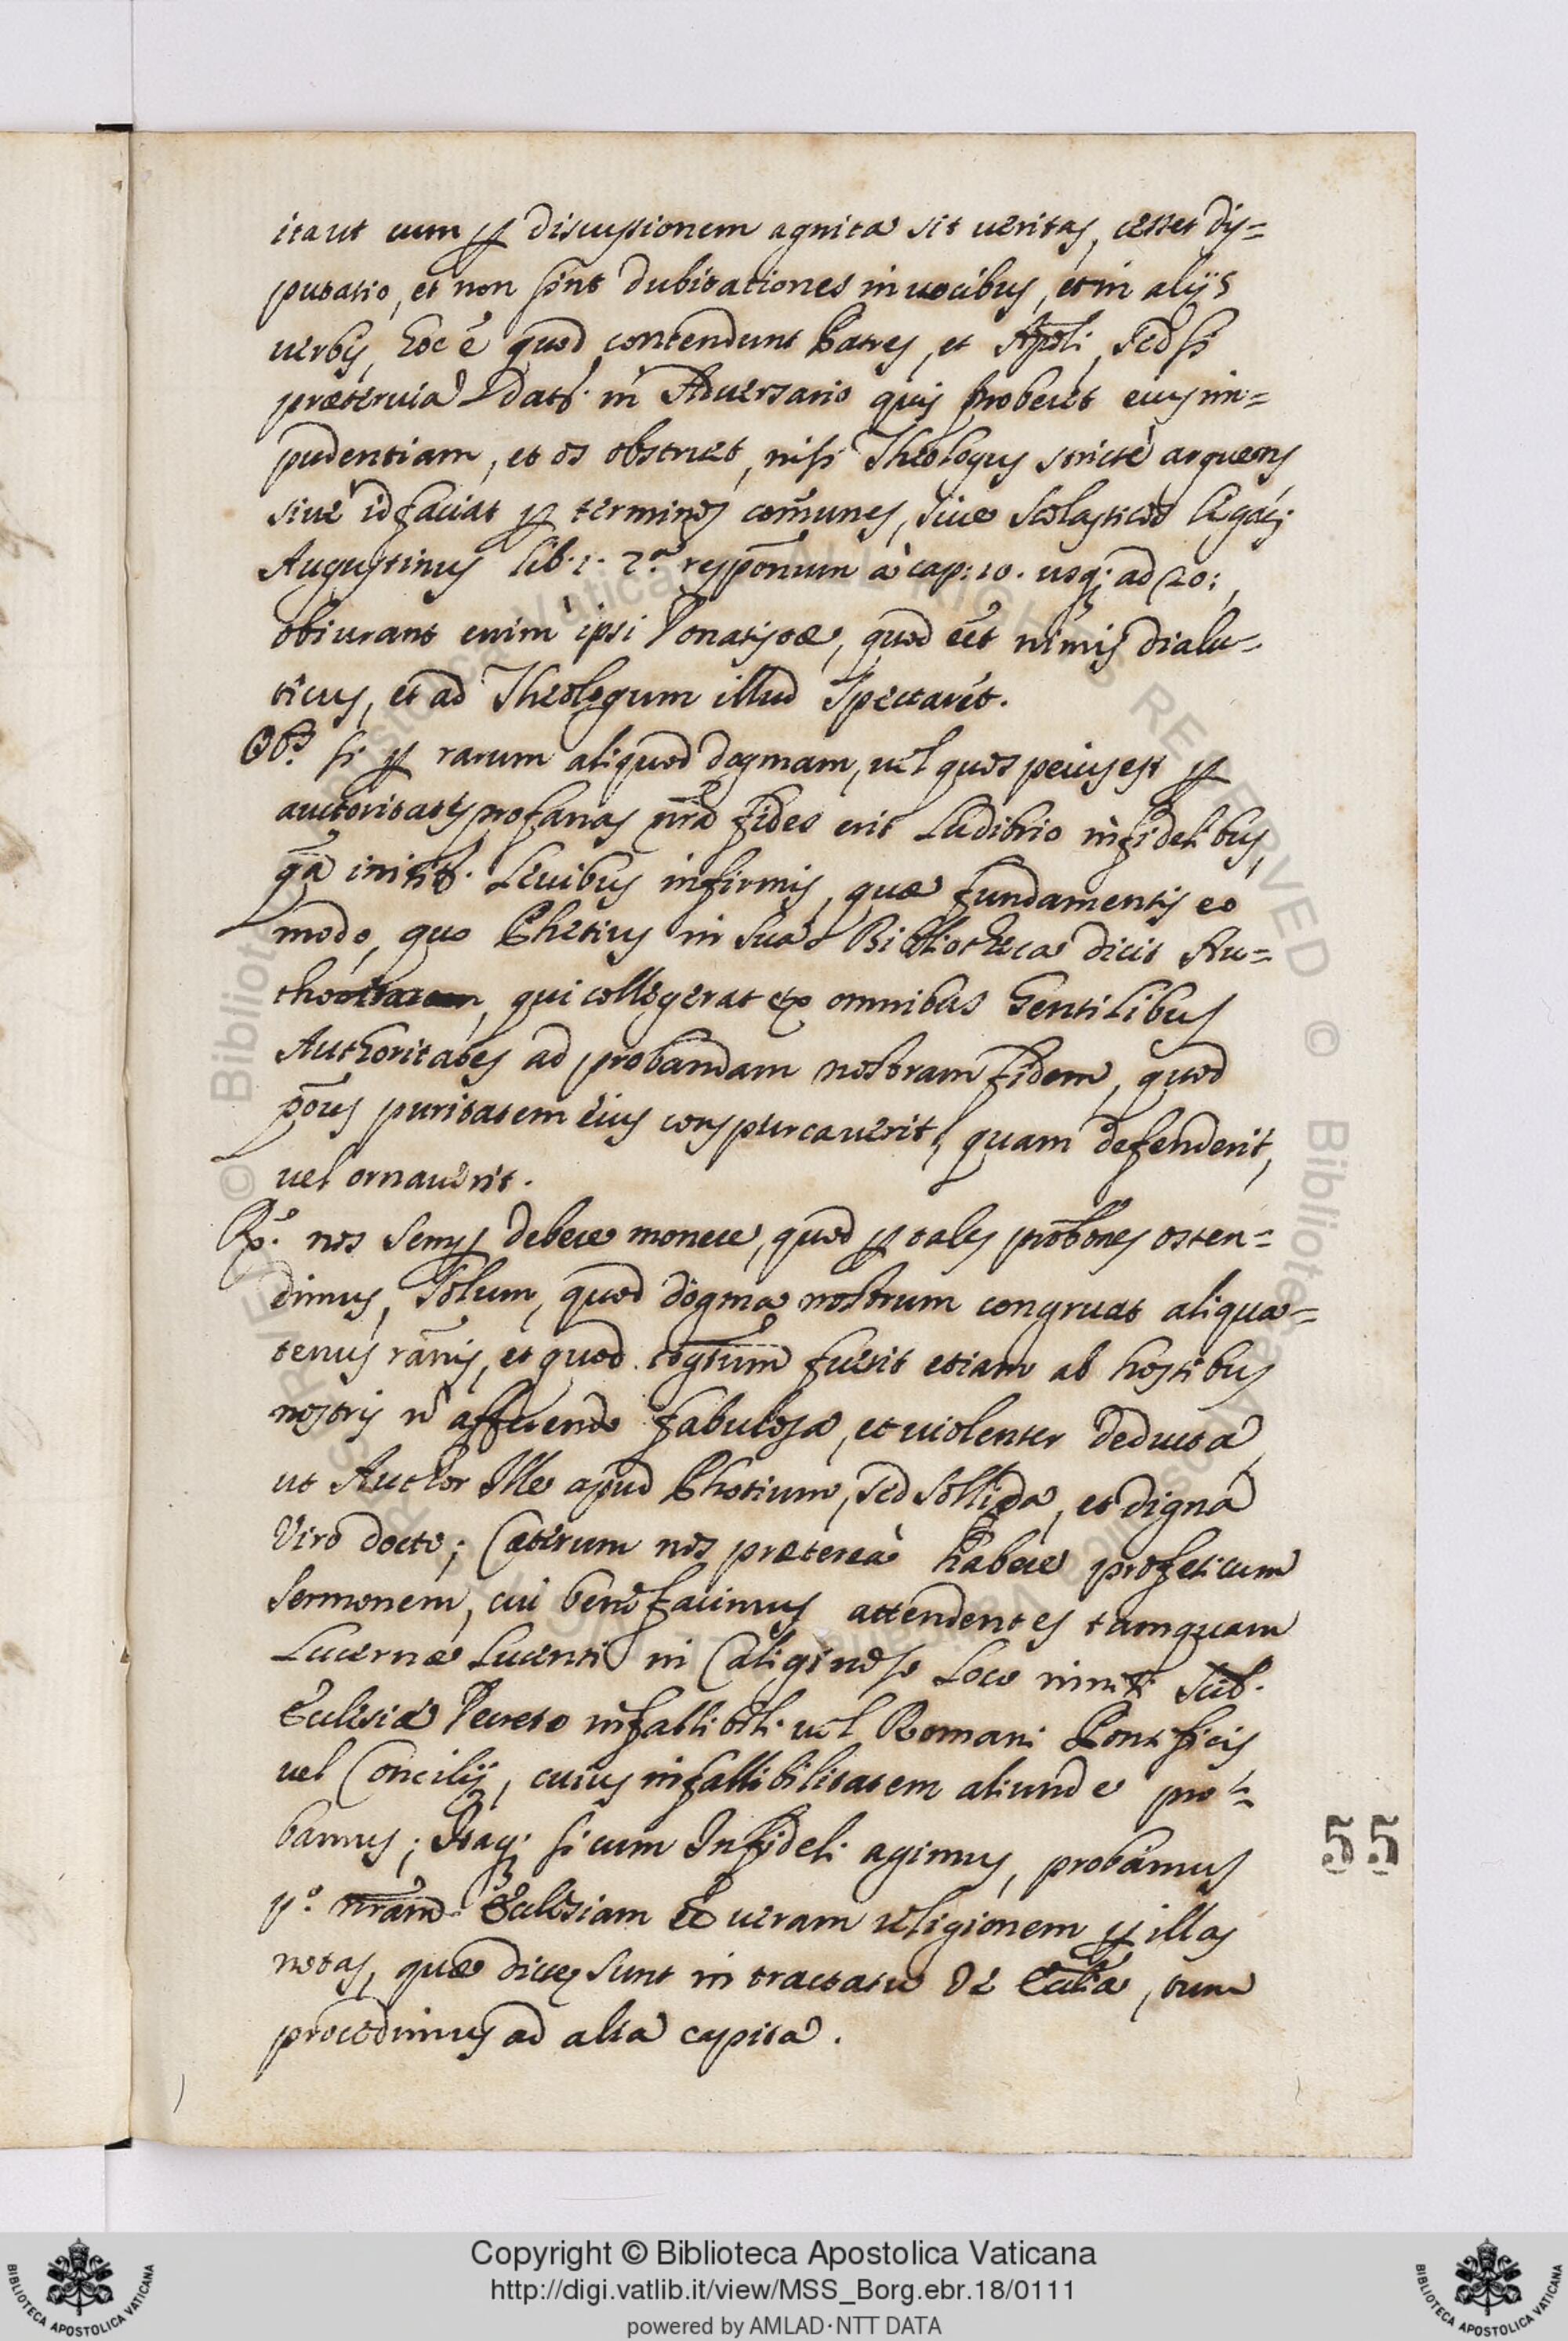 ita ut cum p discussionem agnita sit ueritas, cesset dis=
putatio, et non sint dubitationes in uocibus, et in alijs
uerbis, hoc ē quod contendunt Patres, et Apōli, sed si
proteruia datʳ. in Aduersario quis prohibet eius im=
pudentiam, et os obstruet, nisi Theologus strictè arguens
siuè id faciat p terminos com̄unes, siue scolasticos
Augustinus lib. 1. à cap: 10. usq; ad 20:,
obiurant enim ipsi Donatistæ, quod eēt nimis diale=
ticus, et ad Theologum illud spectaret.
Obs. si p rarum aliquod dogmam, uel quod peius est p
auctoritates profanas nrā fides erit ludibrio infidelibus,
qā initiʳ. leuibus infirmis, quæ fundamentis eo
modo, quo Photius in sua Bibliotheca dicit Au=
thoritatem, qui collegerat ex omnibus gentilibus
Authoritates ad probandam nostram fidem, quod
potius puritatem eius conspurcauerit, quam defenderit,
uel ornauerit.
Rº. nos semp debere monere, quod p tales probōnes osten=
dimus, solum, quod dogma nostrum congruat aliqua=
tenus rāni, et quod cogitum fuerit etiam ab hostibus
nostris nō afferendo fabulosa, et uiolenter deducta
ut Author Ille apud Photium, sed sollida, et digna
Viro docto; Cæterum nos præterea habere profeticum
sermonem, cui benefacimus attendentes tamquam
Lucernæ Lucenti in Caliginoso Loco niniti scilt.
Ecclesiæ Decreto infallibili uel Romani Pontificis
uel Concilij, cuius infallibilitatem aliunde pro=
bamus; Itaq; si cum Infideli agimus, probamus
pº. nrām Ecclesiam et ueram religionem p illas
notas, quæ dictæ sunt in tractatu de Ecclīa, tum
procedimus ad alia capita.
55
Copyright © Biblioteca Apostolica Vaticana
http://digi.vatlib.it/view/MSS_Borg.ebr.18/0111
powered by AMLAD·NTT DATA
BIBLIOTECA APOSTOLICA VATICANA
BIBLIOTECA APOSTOLICA VATICANA